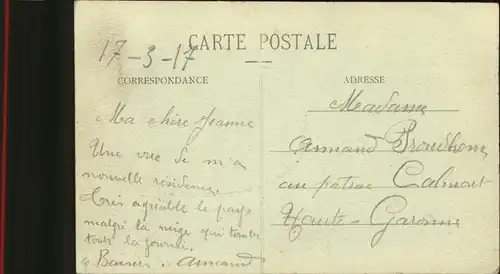 17-3-17
CARTE POSTALE
CORRESPONDANCE
ADRESSE
Ma chère Jeanne
Une vue de m'a
nouvelle résidence.
Très agréable le pays
malgré la neige qui tombe
toute la journée.
Baisers. Armand
Madame
Armand Proudhom
au patrac Calmont
Haute-Garonne